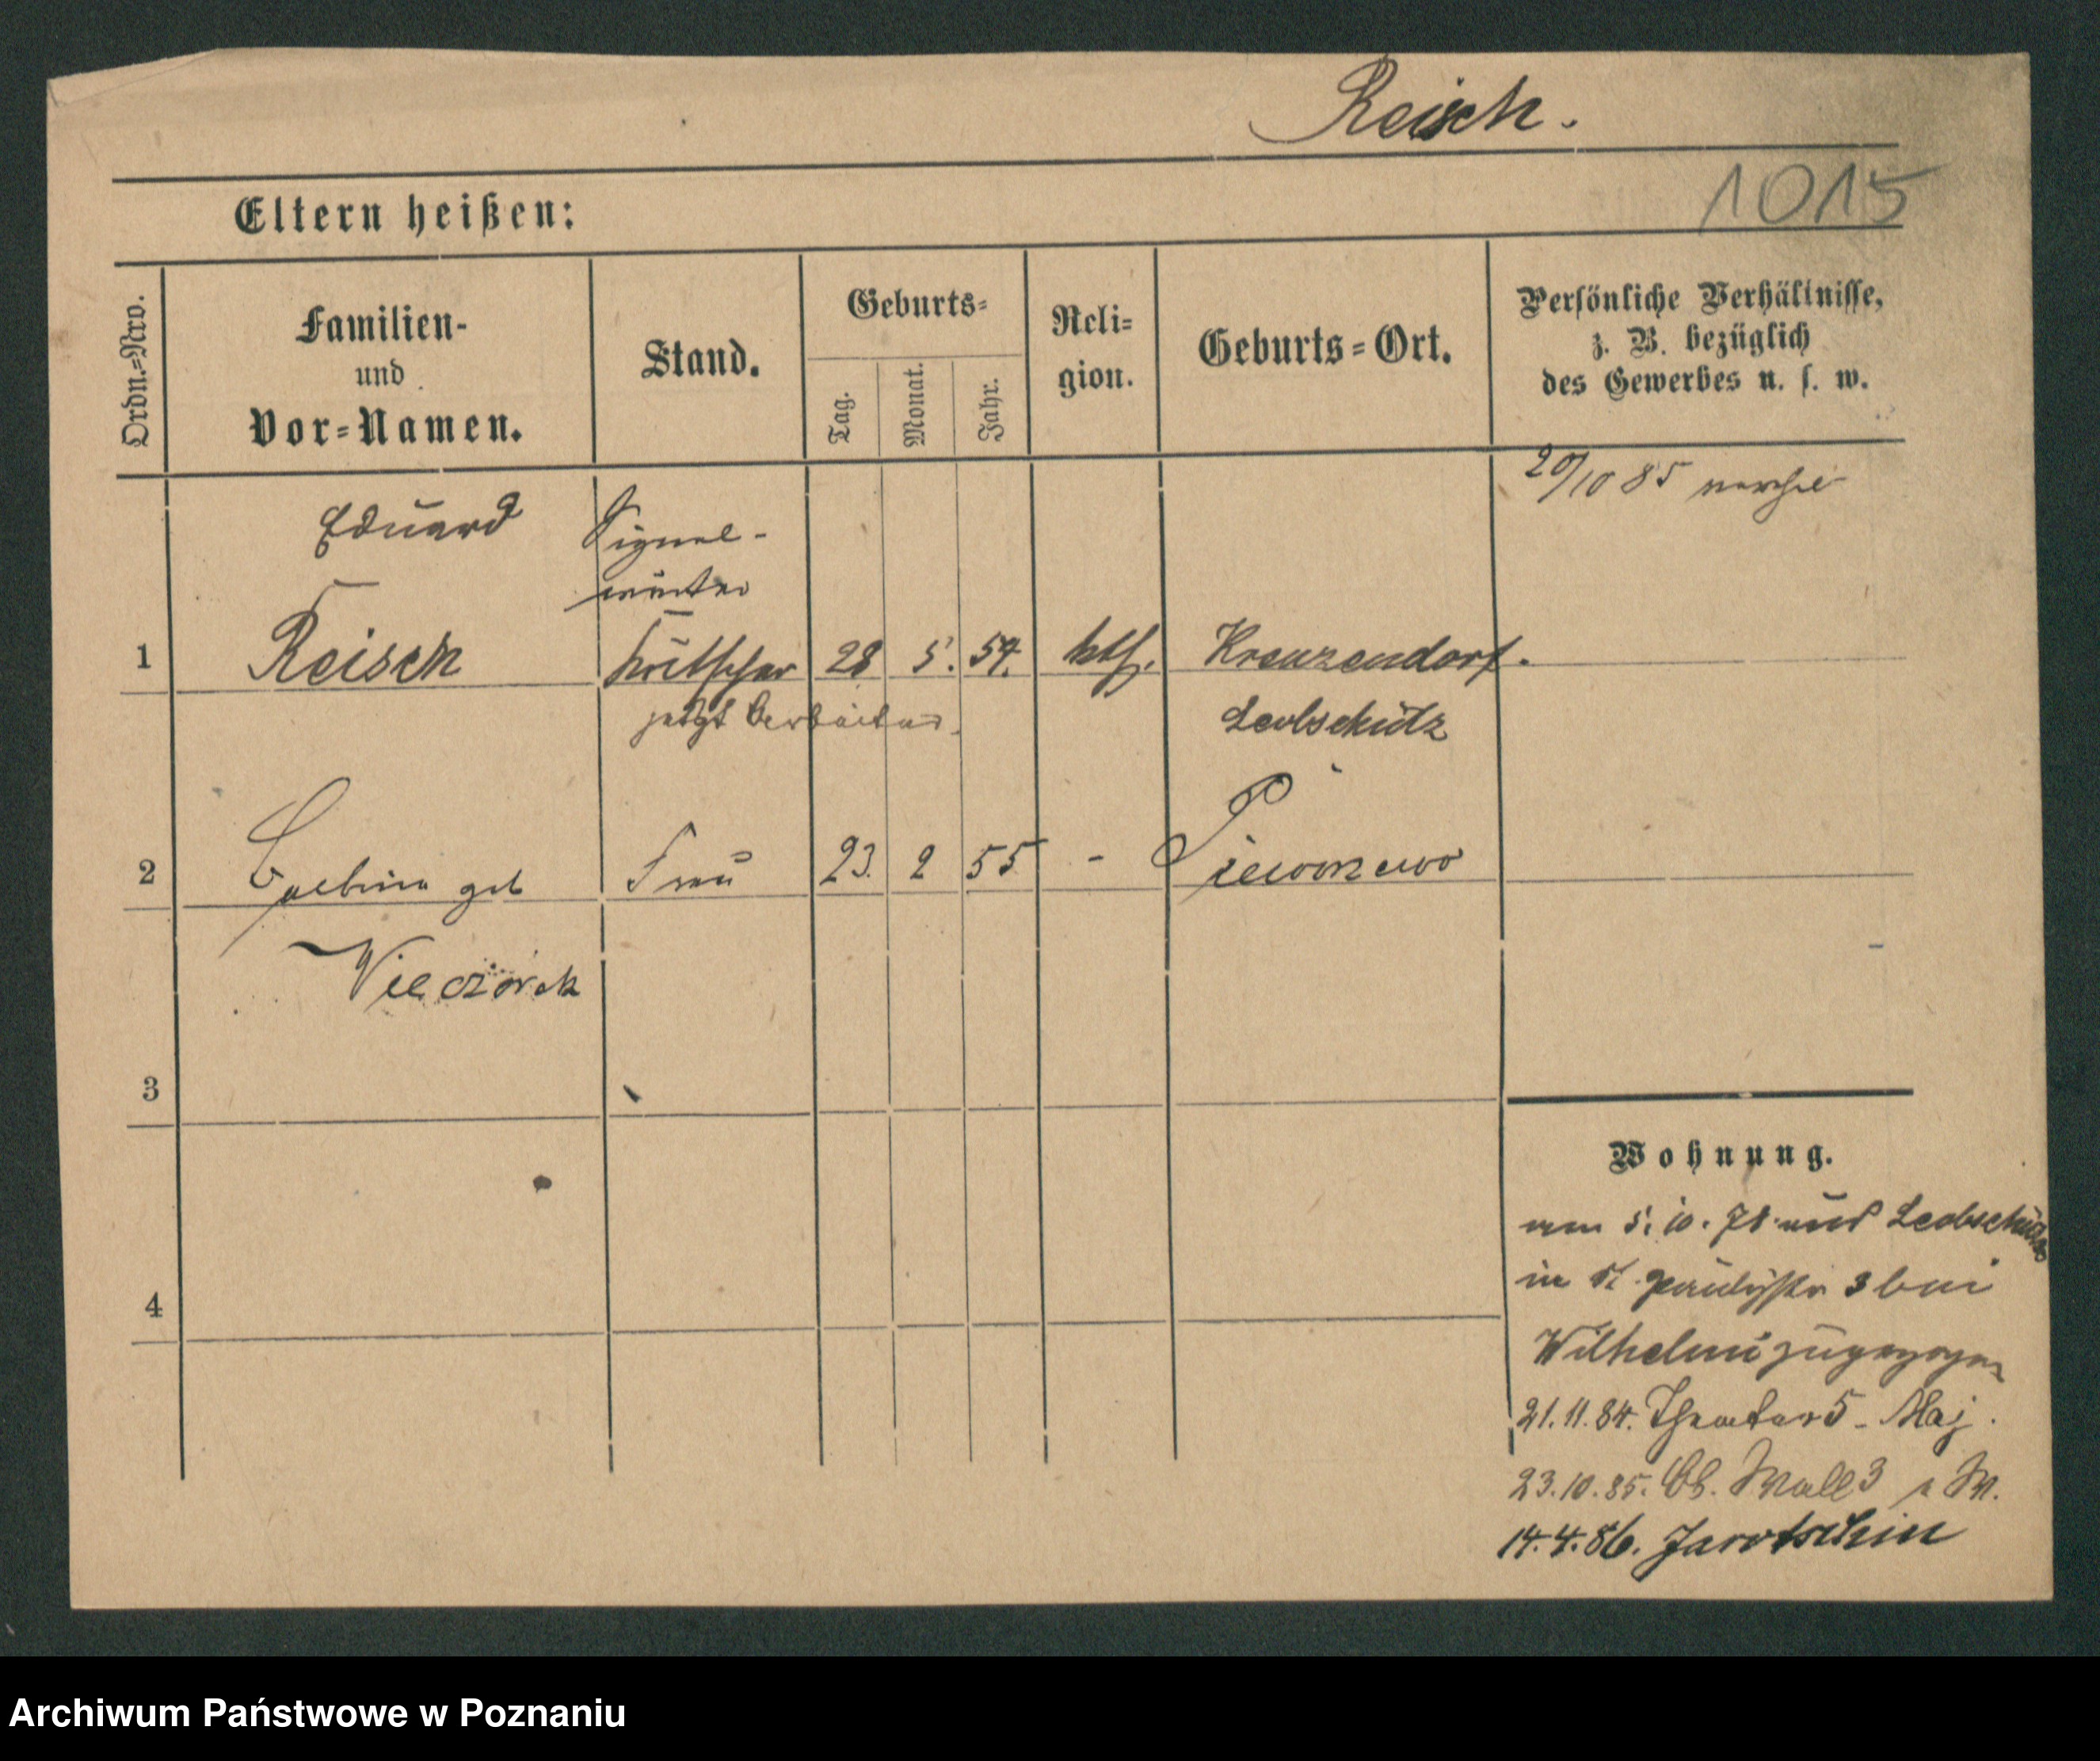 Reisch.
1015
Eltern heißen:
Ordn.=Nro.
Familien-
und
Vor=Namen.
Stand.
Geburts=
Tag.
Monat.
Jahr.
Reli=
gion.
Geburts=Ort.
Persönliche Verhältnisse,
z. B. bezüglich
des Gewerbes u. s. w.
20/10 85
Eduard
Signal-
1 Reisch 28 5. 54. kth. Kreuzendorf.
jetzt Arbeiter.
Leobschütz
2 geb Frau 23. 2 55 -
Wieczorek
3
4
Wohnung.
5. 10. 78 aus Leobschütz
in St. 3 bei
Wilhelmi zugezogen
21.11.84. Theater 5 - Maj.
23.10.85. Wall 3 M.
14.4.86. Jarotschin
Archiwum Państwowe w Poznaniu